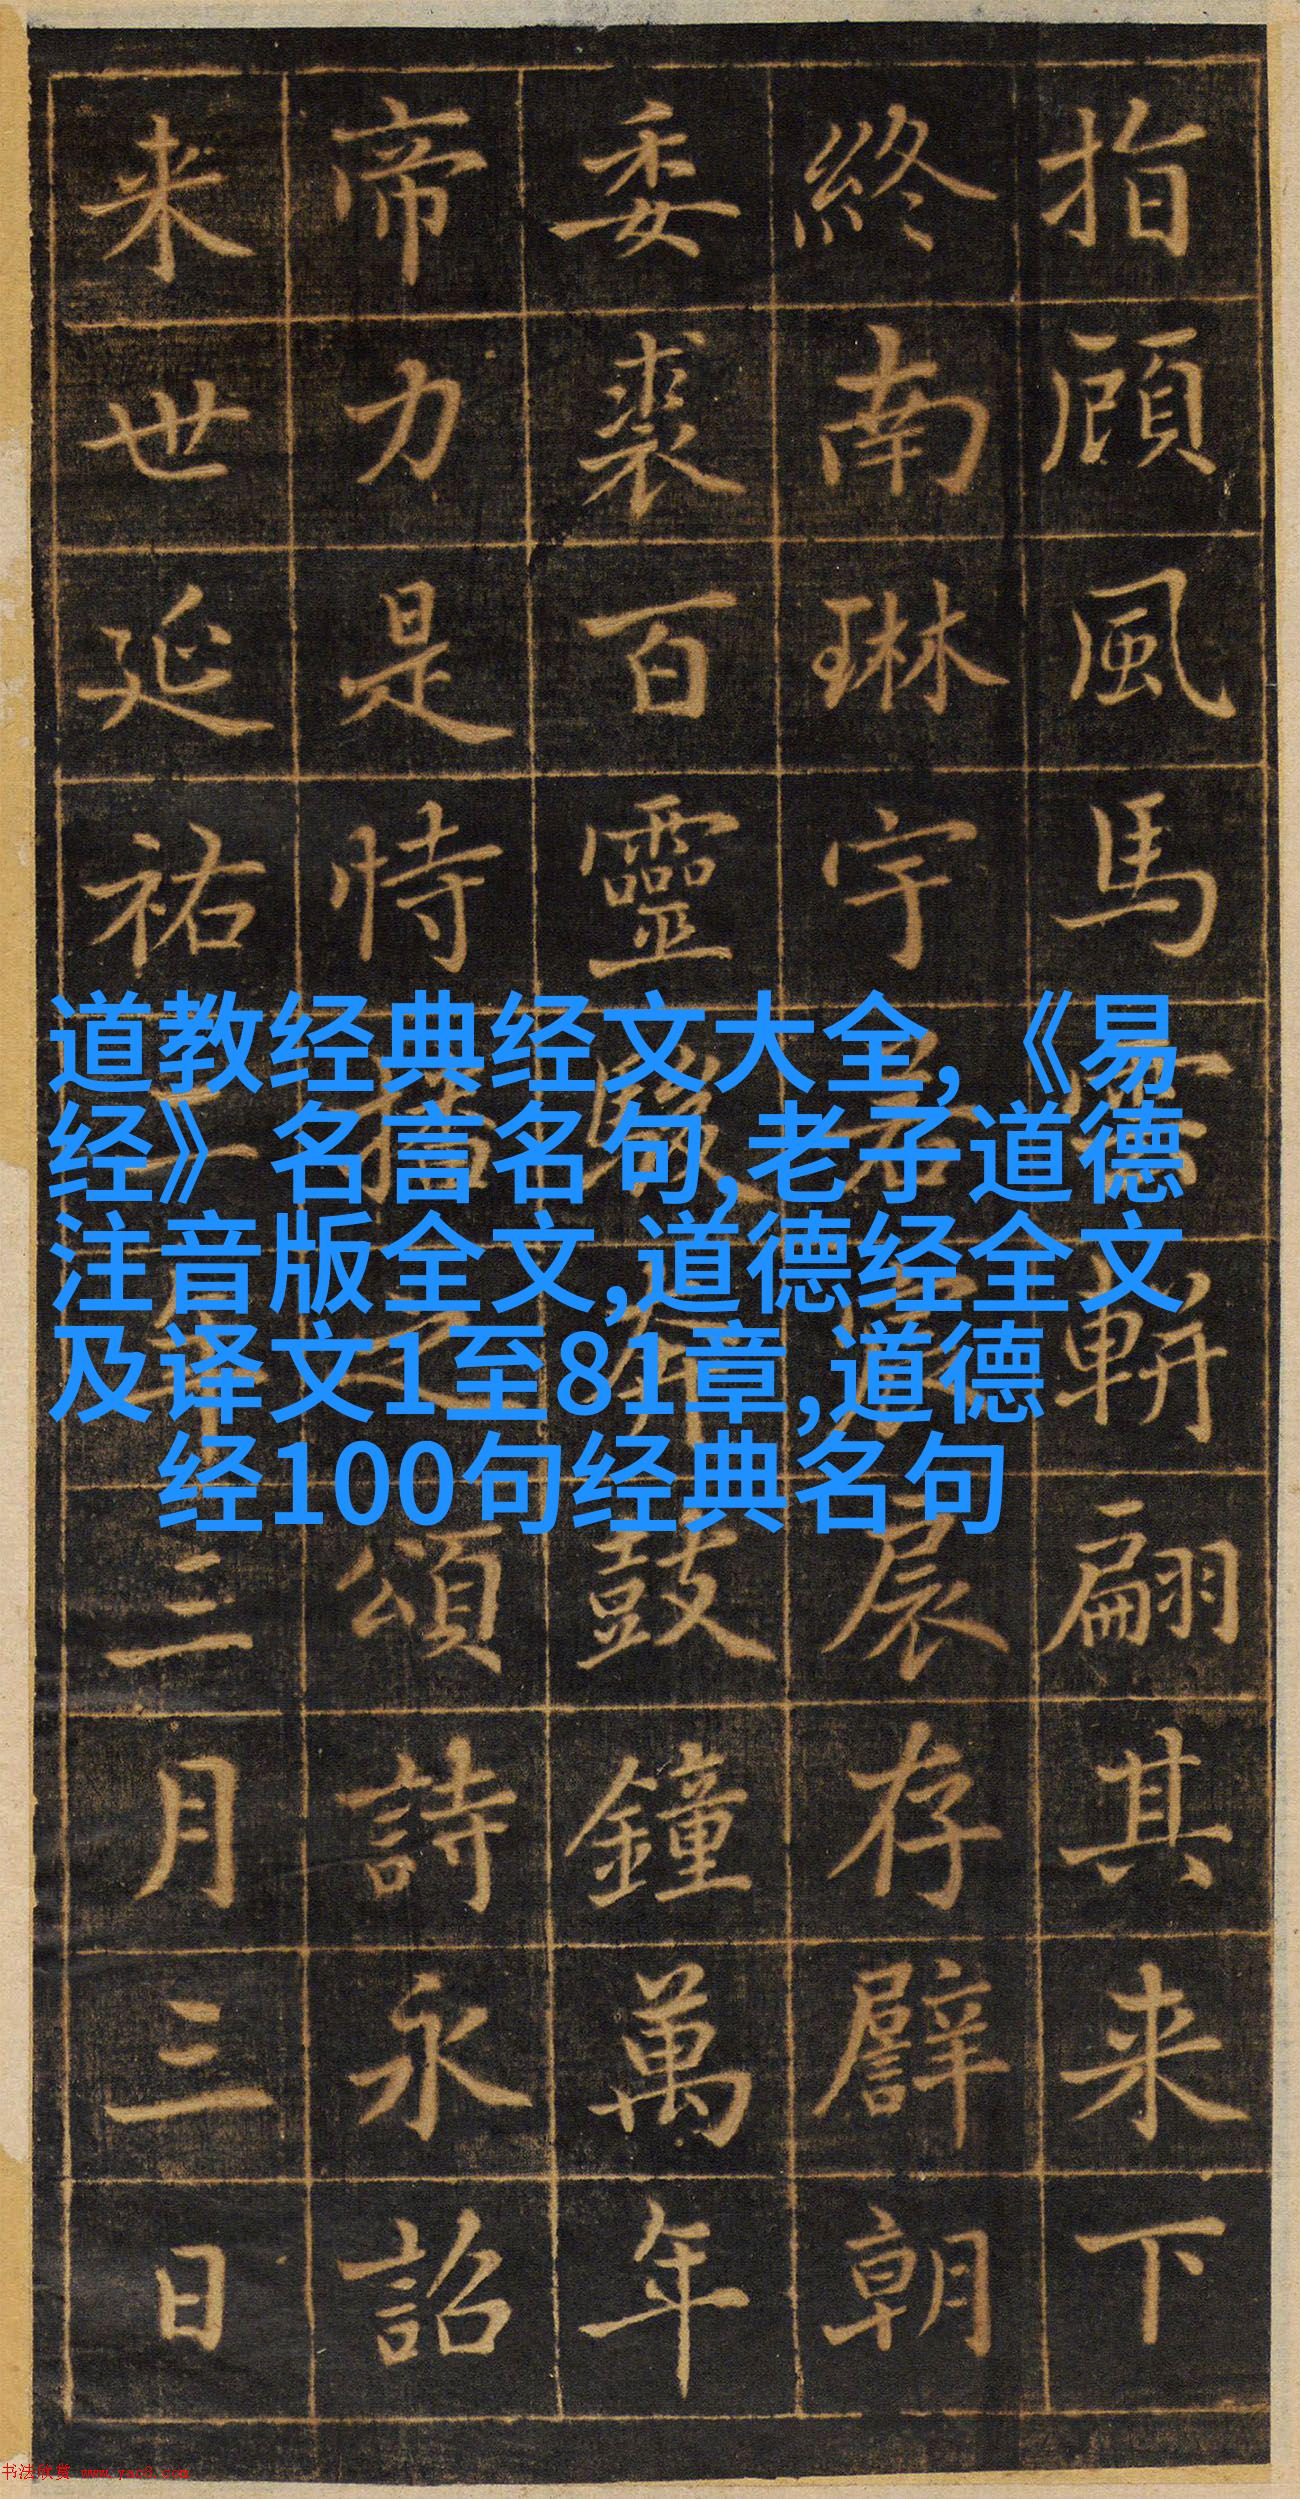 指顧風馬雲軿翩其来下
終南琳宇若存朝
委裘百靈駿奔鼓鐘萬年
帝力是恃播之頌詩永詔
来世延祐年三月三日
道教经典经文大全,《易
经》名言名句,老子道德
注音版全文,道德经全文
及译文1至81章,道德
经100句经典名句
书法欣赏 www.yac8.com